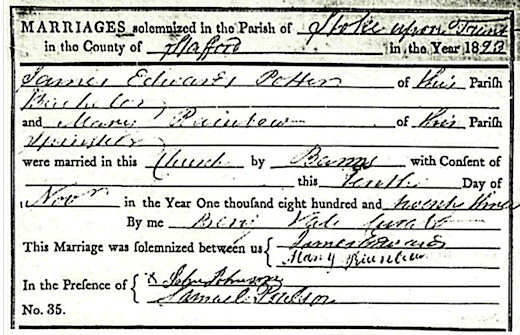 MARRIAGES solemnized in the Parish of Stoke upon Trent
in the County of Stafford in the Year 1823
James Edwards Potter of this Parish
Bachelor
and Mary Rainbow of this Parish
Spinster
were married in this Church by Banns with Consent of
this Tenth Day of
Novr in the Year One thousand eight hundred and twenty three
By me Benj Vale Curate
This Marriage was solemnized between us { James Edwards
Mary Rainbow
In the Presence of { x John Johnson
Samuel Poulson
No. 35.